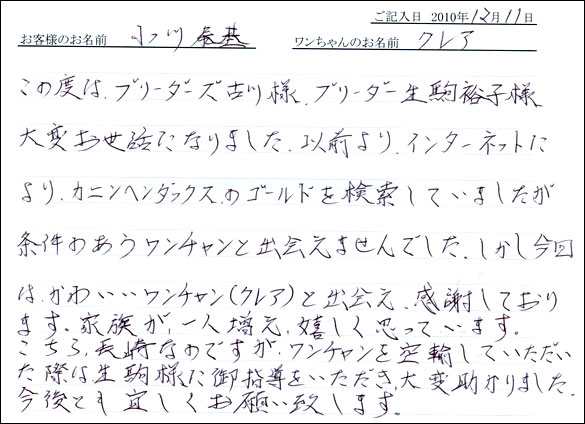 ご記入日 2010年12月11日
お客様のお名前 小川 辰基 ワンちゃんのお名前 クレア
この度は、ブリーダーズ吉川様、ブリーダー生駒裕子様
大変お世話になりました。以前より、インターネットに
より、カニンヘンダックス、のゴールドを検索していましたが
条件のあうワンチャンと出会えませんでした。しかし今回
は、かわいいワンチャン(クレア)と出会え、感謝しており
ます。家族が、一人増え、嬉しく思っています。
こちら、長崎なのですが、ワンチャンを空輸していただい
た際は生駒様に御指導をいただき、大変助かりました。
今後とも宜しくお願い致します。